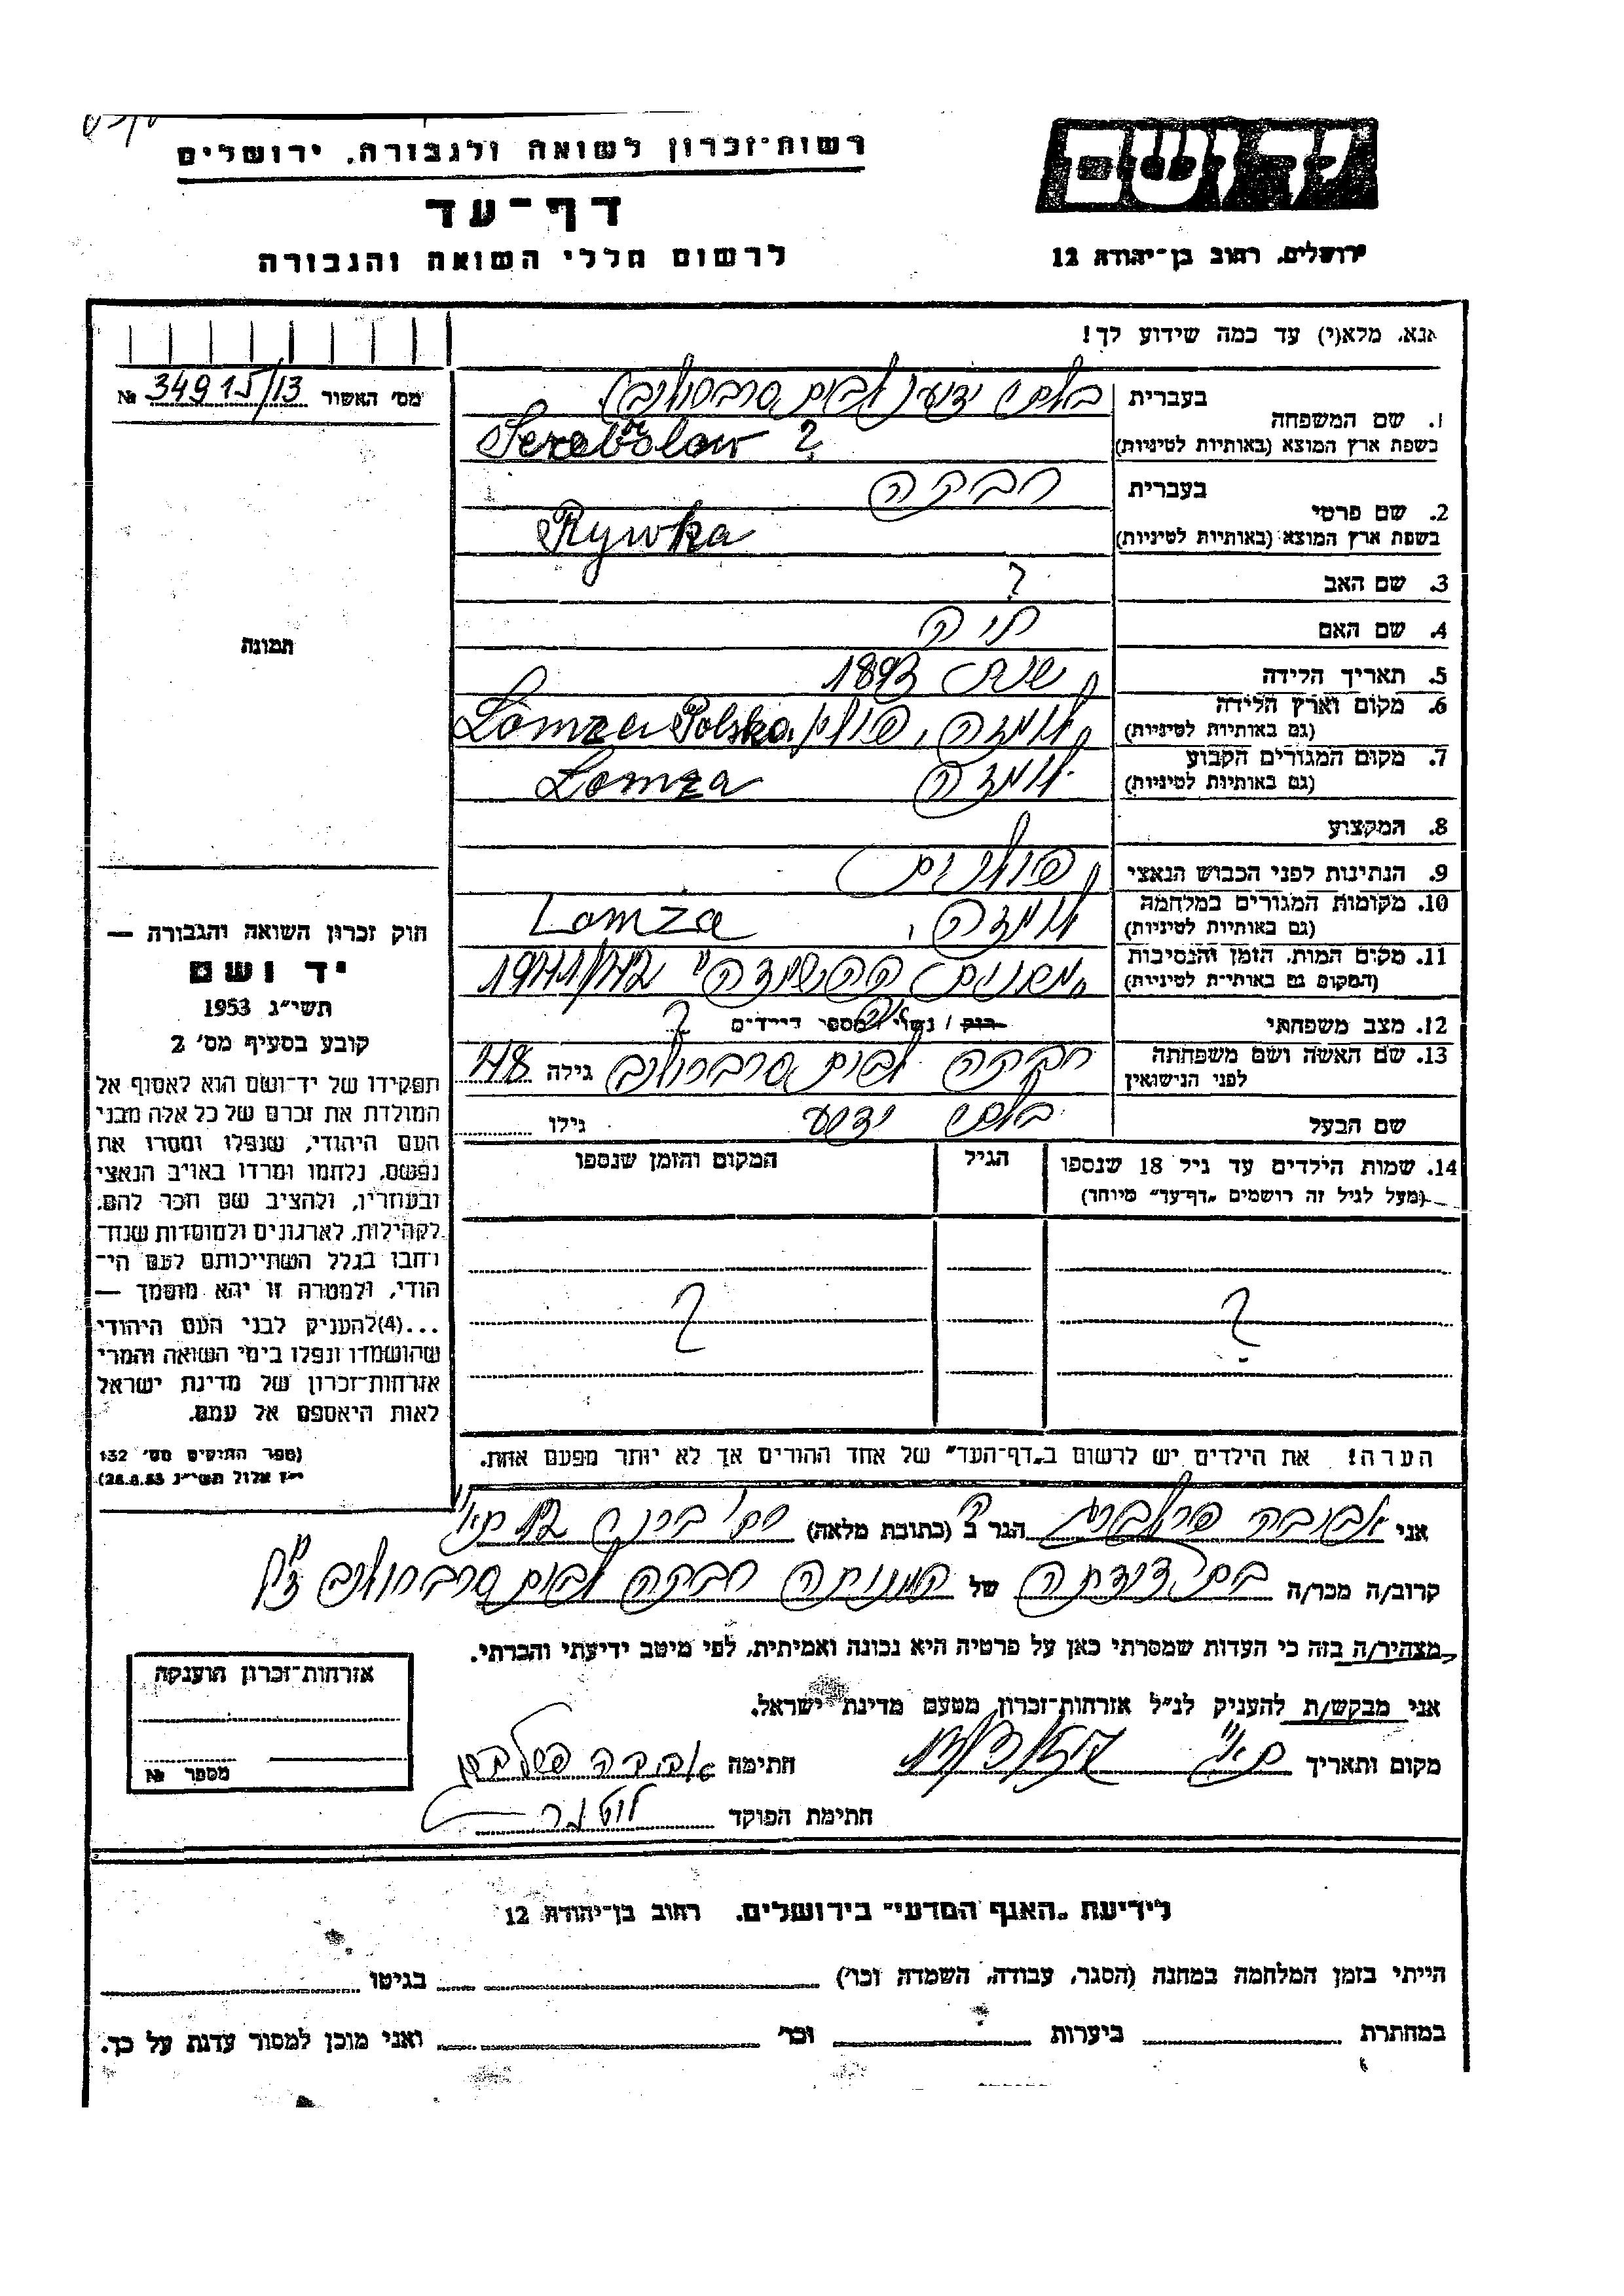 רשות-זכרון לשואה ולגבורה, ירושלים
דף-עד
לרשום חללי השואה והגבורה
ידושם
ירושלים, רחוב בן-יהודה 12
אנא, מלא(י) עד כמה שידוע לך!
מס' האשור № 34915/13
תמונה
1. שם המשפחה
בעברית בלתי ידוע לבית סרברולוב
בשפת ארץ המוצא (באותיות לטיניות) Serebolow ?
2. שם פרטי
בעברית רבקה
בשפת ארץ המוצא (באותיות לטיניות) Rywka
3. שם האב ?
4. שם האם חיה
5. תאריך הלידה שנת 1893
6. מקום וארץ הלידה (גם באותיות לטיניות) לומזה, פולין Lomza Polska
7. מקום המגורים הקבוע (גם באותיות לטיניות) לומזה Lomza
8. המקצוע
9. הנתינות לפני הכבוש הנאצי פולנית
10. מקומות המגורים במלחמה (גם באותיות לטיניות) לומזה, Lomza
11. מקום המות, הזמן והנסיבות (המקום גם באותיות לטיניות) ההשמדה" 1941/42
12. מצב משפחתי רוק / נשוי / מספר הילדים ?
13. שם האשה ושם משפחתה לפני הנישואין רבקה לבית סרברולוב גילה 48
שם הבעל בלתי ידוע גילו
14. שמות הילדים עד גיל 18 שנספו (מעל לגיל זה רושמים "דף-עד" מיוחד)
הגיל
המקום והזמן שנספו
? ?
הערה! את הילדים יש לרשום ב"דף-העד" של אחד ההורים אך לא יותר מפעם אחת.
חוק זכרון השואה והגבורה —
יד ושם
תשי"ג 1953
קובע בסעיף מס' 2
תפקידו של יד-ושם הוא לאסוף אל
המולדת את זכרם של כל אלה מבני
העם היהודי, שנפלו ומסרו את
נפשם, נלחמו ומרדו באויב הנאצי
ובעוזריו, ולהציב שם וזכר להם,
לקהילות, לארגונים ולמוסדות שנח-
רבו בגלל השתייכותם לעם הי-
הודי, ולמטרה זו יהא מוסמך —
...(4)להעניק לבני העם היהודי
שהושמדו ונפלו בימי השואה והמרי
אזרחות-זכרון של מדינת ישראל
לאות היאספם אל עמם.
(ספר החוקים מס' 132
י"ז אלול תשי"ג 28.8.53)
אני אביבה הגר ב (כתובת מלאה) רח' 12 ת"א
קרוב/ה מכר/ה בת דודתה של המנוחה רבקה לבית סרברולוב ז"ל
מצהיר/ה בזה כי העדות שמסרתי כאן על פרטיה היא נכונה ואמיתית, לפי מיטב ידיעתי והכרתי.
אני מבקש/ת להעניק לנ"ל אזרחות-זכרון מטעם מדינת ישראל.
מקום ותאריך ת"א חתימה אביבה
חתימת הפוקד
אזרחות-זכרון הוענקה
מספר №
לידיעת "האגף המדעי" בירושלים, רחוב בן-יהודה 12
הייתי בזמן המלחמה במחנה (הסגר, עבודה, השמדה וכו') בגיטו
במחתרת ביערות וכו' ואני מוכן למסור עדות על כך.